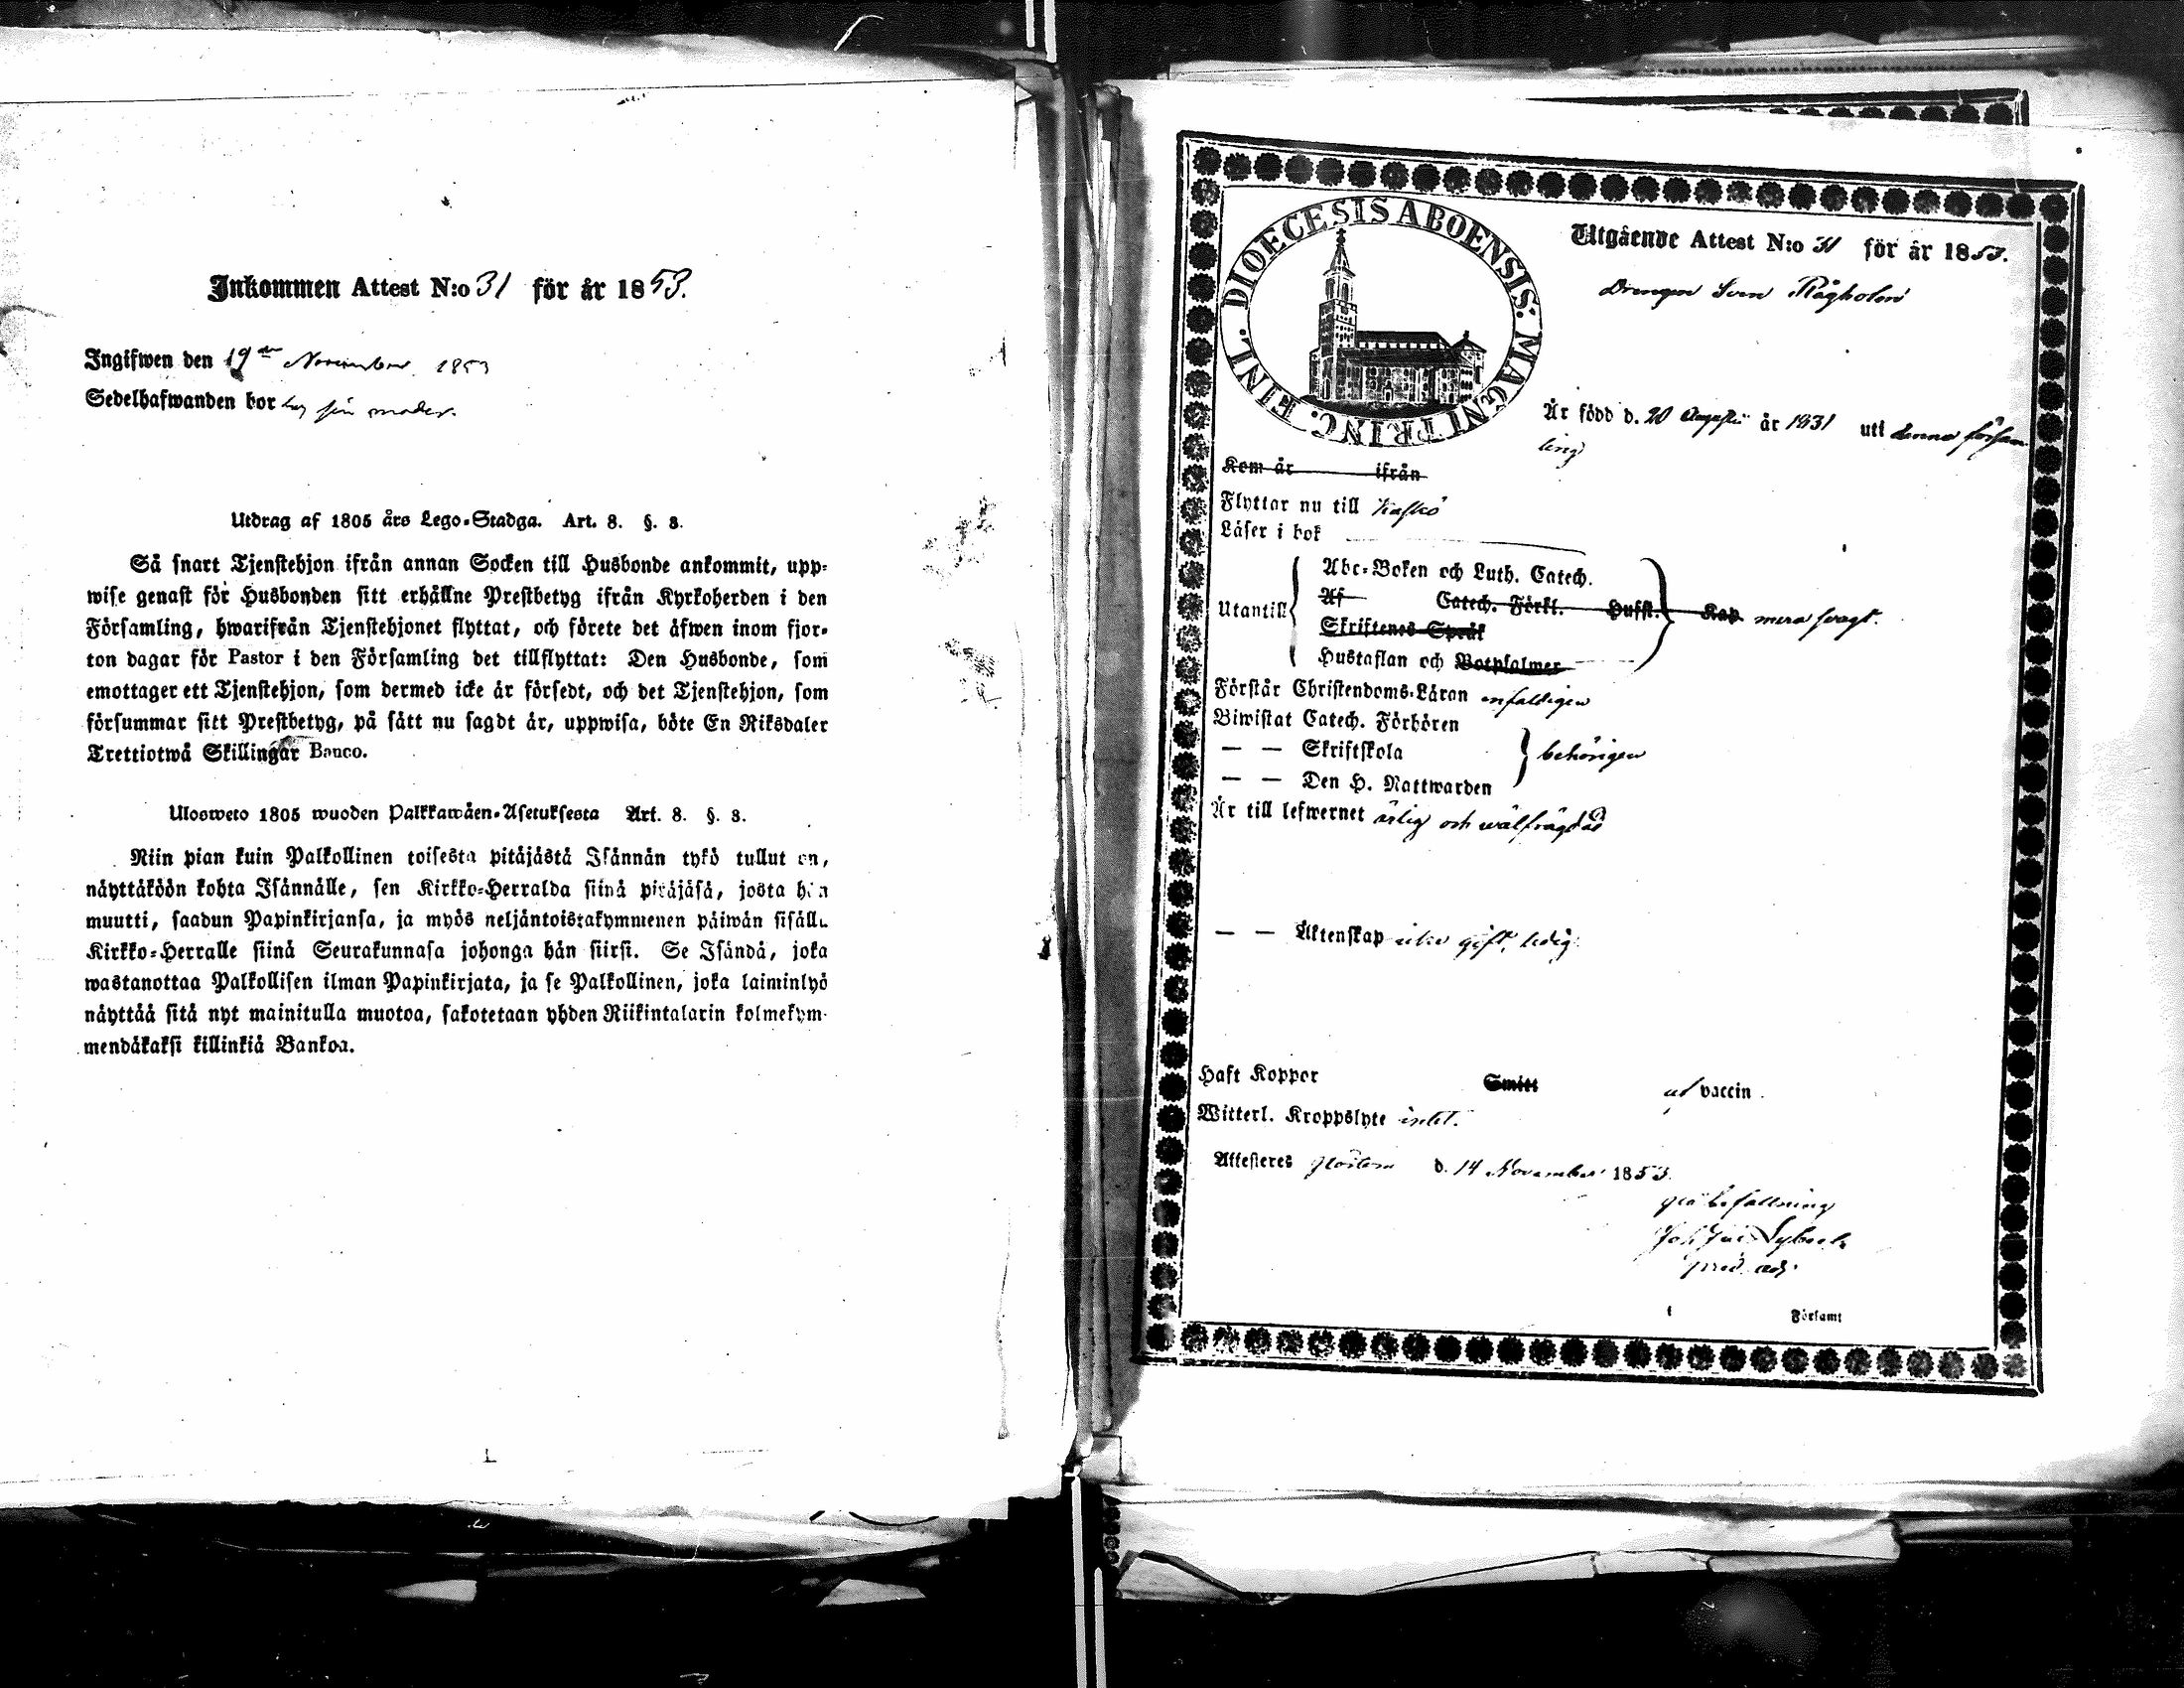 Inkommen Attest N:o 31 för år 1853.
Ingifwen den 19de November 1853
Sedelhafwanden bor hos sin moder.
Utdrag af 1805 års Lego-Stadga. Art. 8. §. 3.
Så snart Tjenstehjon ifrån annan Socken till Husbonde ankommit, upp-
wise genast för Husbonden sitt erhållne Prestbetyg ifrån Kyrkoherden i den
Församling, hwarifrån Tjenstehjonet flyttat, och förete det äfwen inom fjor-
ton dagar för Pastor i den Församling det tillflyttat: Den Husbonde, som
emottager ett Tjenstehjon, som dermed icke är försedt, och det Tjenstehjon, som
försummar sitt Prestbetyg, på sätt nu sagdt är, uppwisa, böte En Riksdaler
Trettiotwå Skillingar Banco.
Ulosweto 1805 wuoden Palkkawäen-Asetuksesta Art. 8. §. 3.
Niin pian kuin Palkollinen toisesta pitäjästä Isännän tykö tullut on,
näyttäköön kohta Isännälle, sen Kirkko-Herralda siinä pitäjäsä, josta hän
muutti, saadun Papinkirjansa, ja myös neljäntoistakymmenen päiwän sisällä
Kirkko-Herralle siinä Seurakunnasa johonga hän siirsi. Se Isändä, joka
wastanottaa Palkollisen ilman Papinkirjata, ja se Palkollinen, joka laiminlyö
näyttää sitä nyt mainitulla muotoa, sakotetaan yhden Riikintalarin kolmekym-
mendäkaksi killinkiä Bankoa.
DIOECESIS ABOENSIS. MAGNI PRINC. FINL.
Utgående Attest N:o 31 för år 1853.
Drengen Sven Rågholm
Är född d. 20 Augusti år 1831 uti denna försam-
ling
Kom år ifrån
Flyttar nu till
Läser i bok
Abc-Boken och Luth. Catech.
Utantill Af Catech. Förkl. Hufst. Kap. mera svagt.
Skriftenes Språk
Hustaflan och Botpsalmer
Förstår Christendoms-Läran enfaldigen
Biwistat Catech. Förhören
— — Skriftskola behörigen
— — Den H. Nattwarden
Är till lefwernet ärlig och wälfrägdad
— — Äktenskap icke gift, ledig.
Haft Koppor Smitt af vaccin.
Witterl. Kroppslyte intet.
Attesteras d. 14 November 1853.
befallning
Joh
adj.
Församl